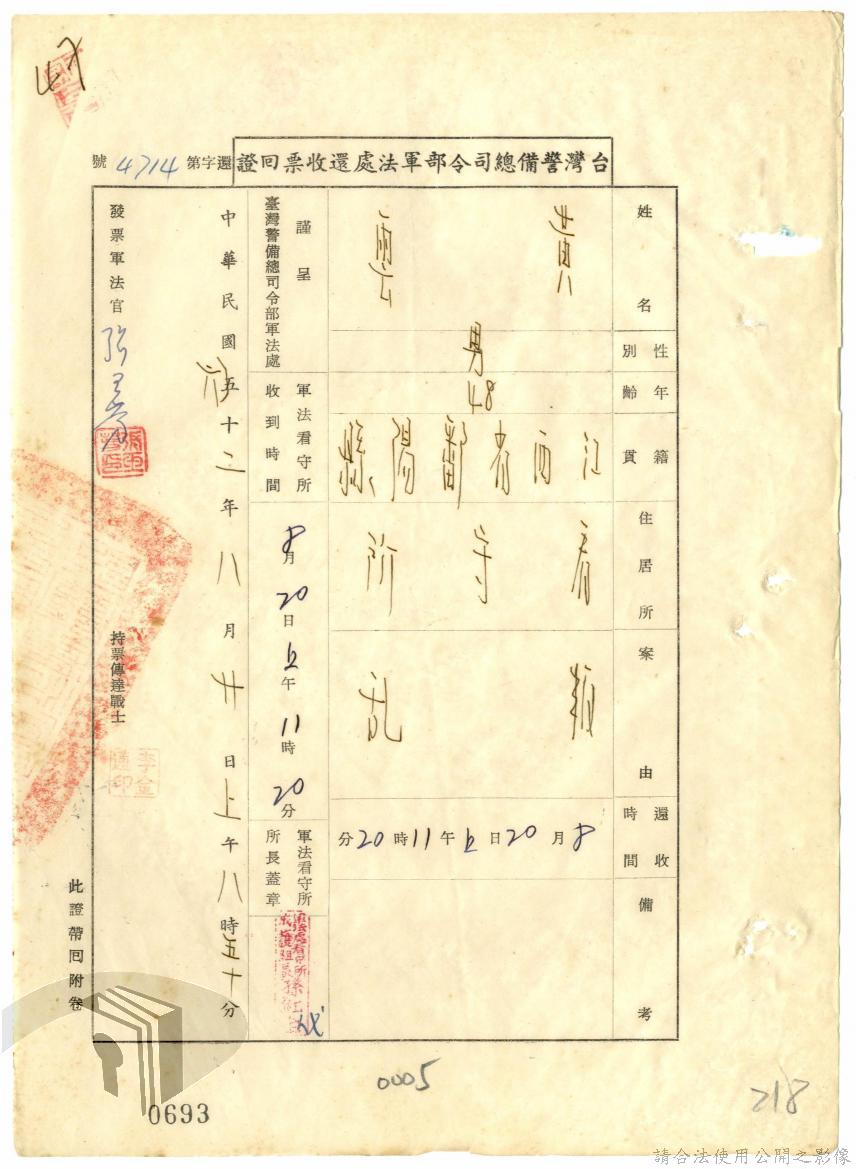 47
台灣警備總司令部軍法處還收票回證
還字第4714號
姓名
黃雲
性別
男
年齡
48
籍貫
江西省鄱陽縣
住居所
看守所
案由
叛乱
還收時間
8月20日上午11時20分
備考
謹呈
臺灣警備總司令部軍法處
軍法看守所收到時間
8月20日上午11時20分
軍法看守所所長蓋章
中華民國五十六二年八月廿日上午八時五十分
發票軍法官
持票傳達戰士
李金
通印
此證帶回附卷
0005
0693
218
請合法使用公開之影像